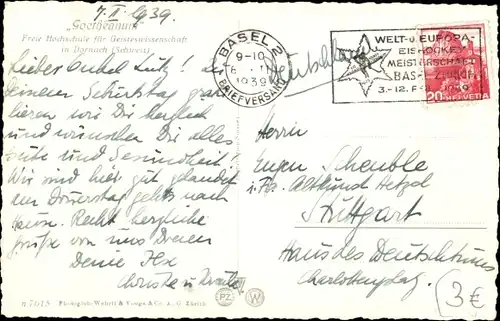 7. II. 1939.
„Goetheanum“
Freie Hochschule für Geisteswissenschaft
in Dornach (Schweiz)
BASEL 2
9-10
1939
BRIEFVERSAND
WELT- u. EUROPA-
EISHOCKEY
MEISTERSCHAFT
BASEL ZÜRICH
3.-12. FEB. 1939
20 HELVETIA
Deutschland
Lieber Onkel Lutz! Zu
Deinem Geburtstag gratu-
lieren wir Dir herzlich
und wünschen Dir alles
Gute und Gesundheit!
Wir sind hier gut gelandet
am Donerstag gehts nach
Haus. Recht herzliche
Grüße von uns Dreien
Deine
Herrn
Eugen Scheuble
i. Fa.
Stuttgart
Haus des Deutschtums
Charlottenplatz
3€
n 7615 Photoglob-Wehrli & Vouga & Co. A. G. Zürich
PZ W